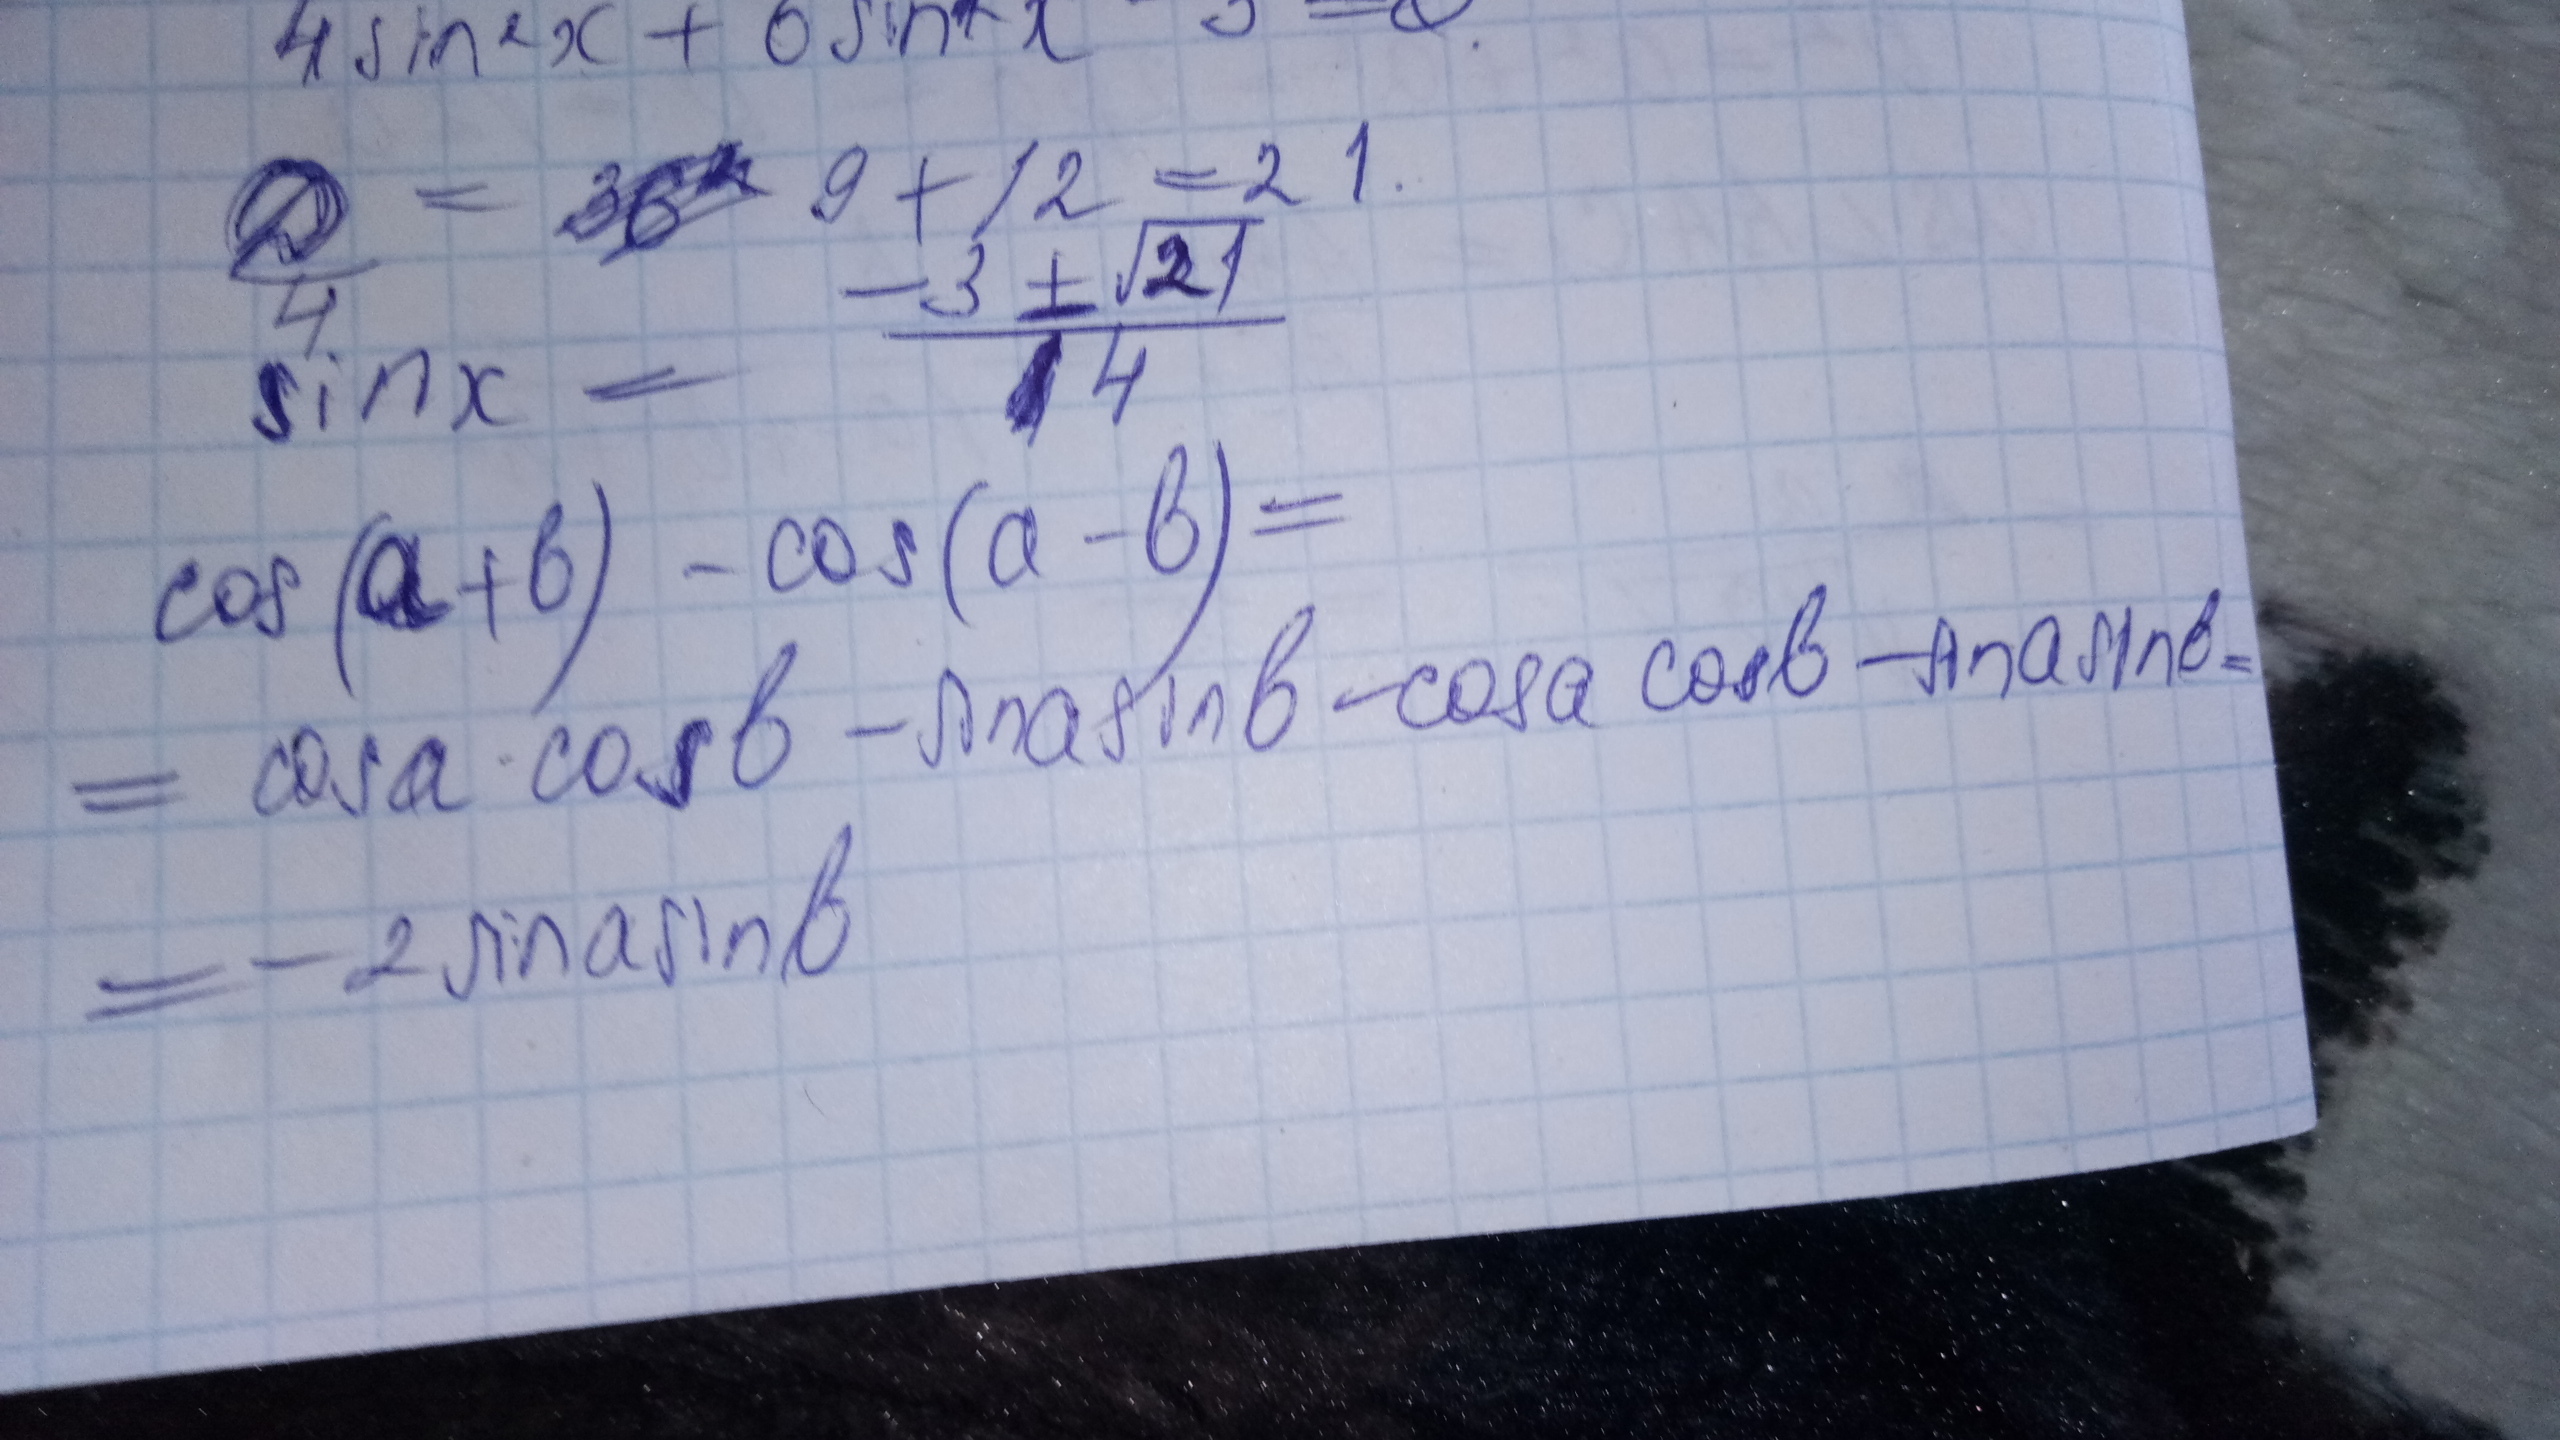 4 sin²x + 6 sin²x - 3 = 0.
D/4 = 9 + 12 = 21.
sin x = (-3 ± √21)/4
cos(a+b) - cos(a-b) =
= cosa · cosb - sinasinb - cosa cosb - sinasinb =
= -2 sinasinb